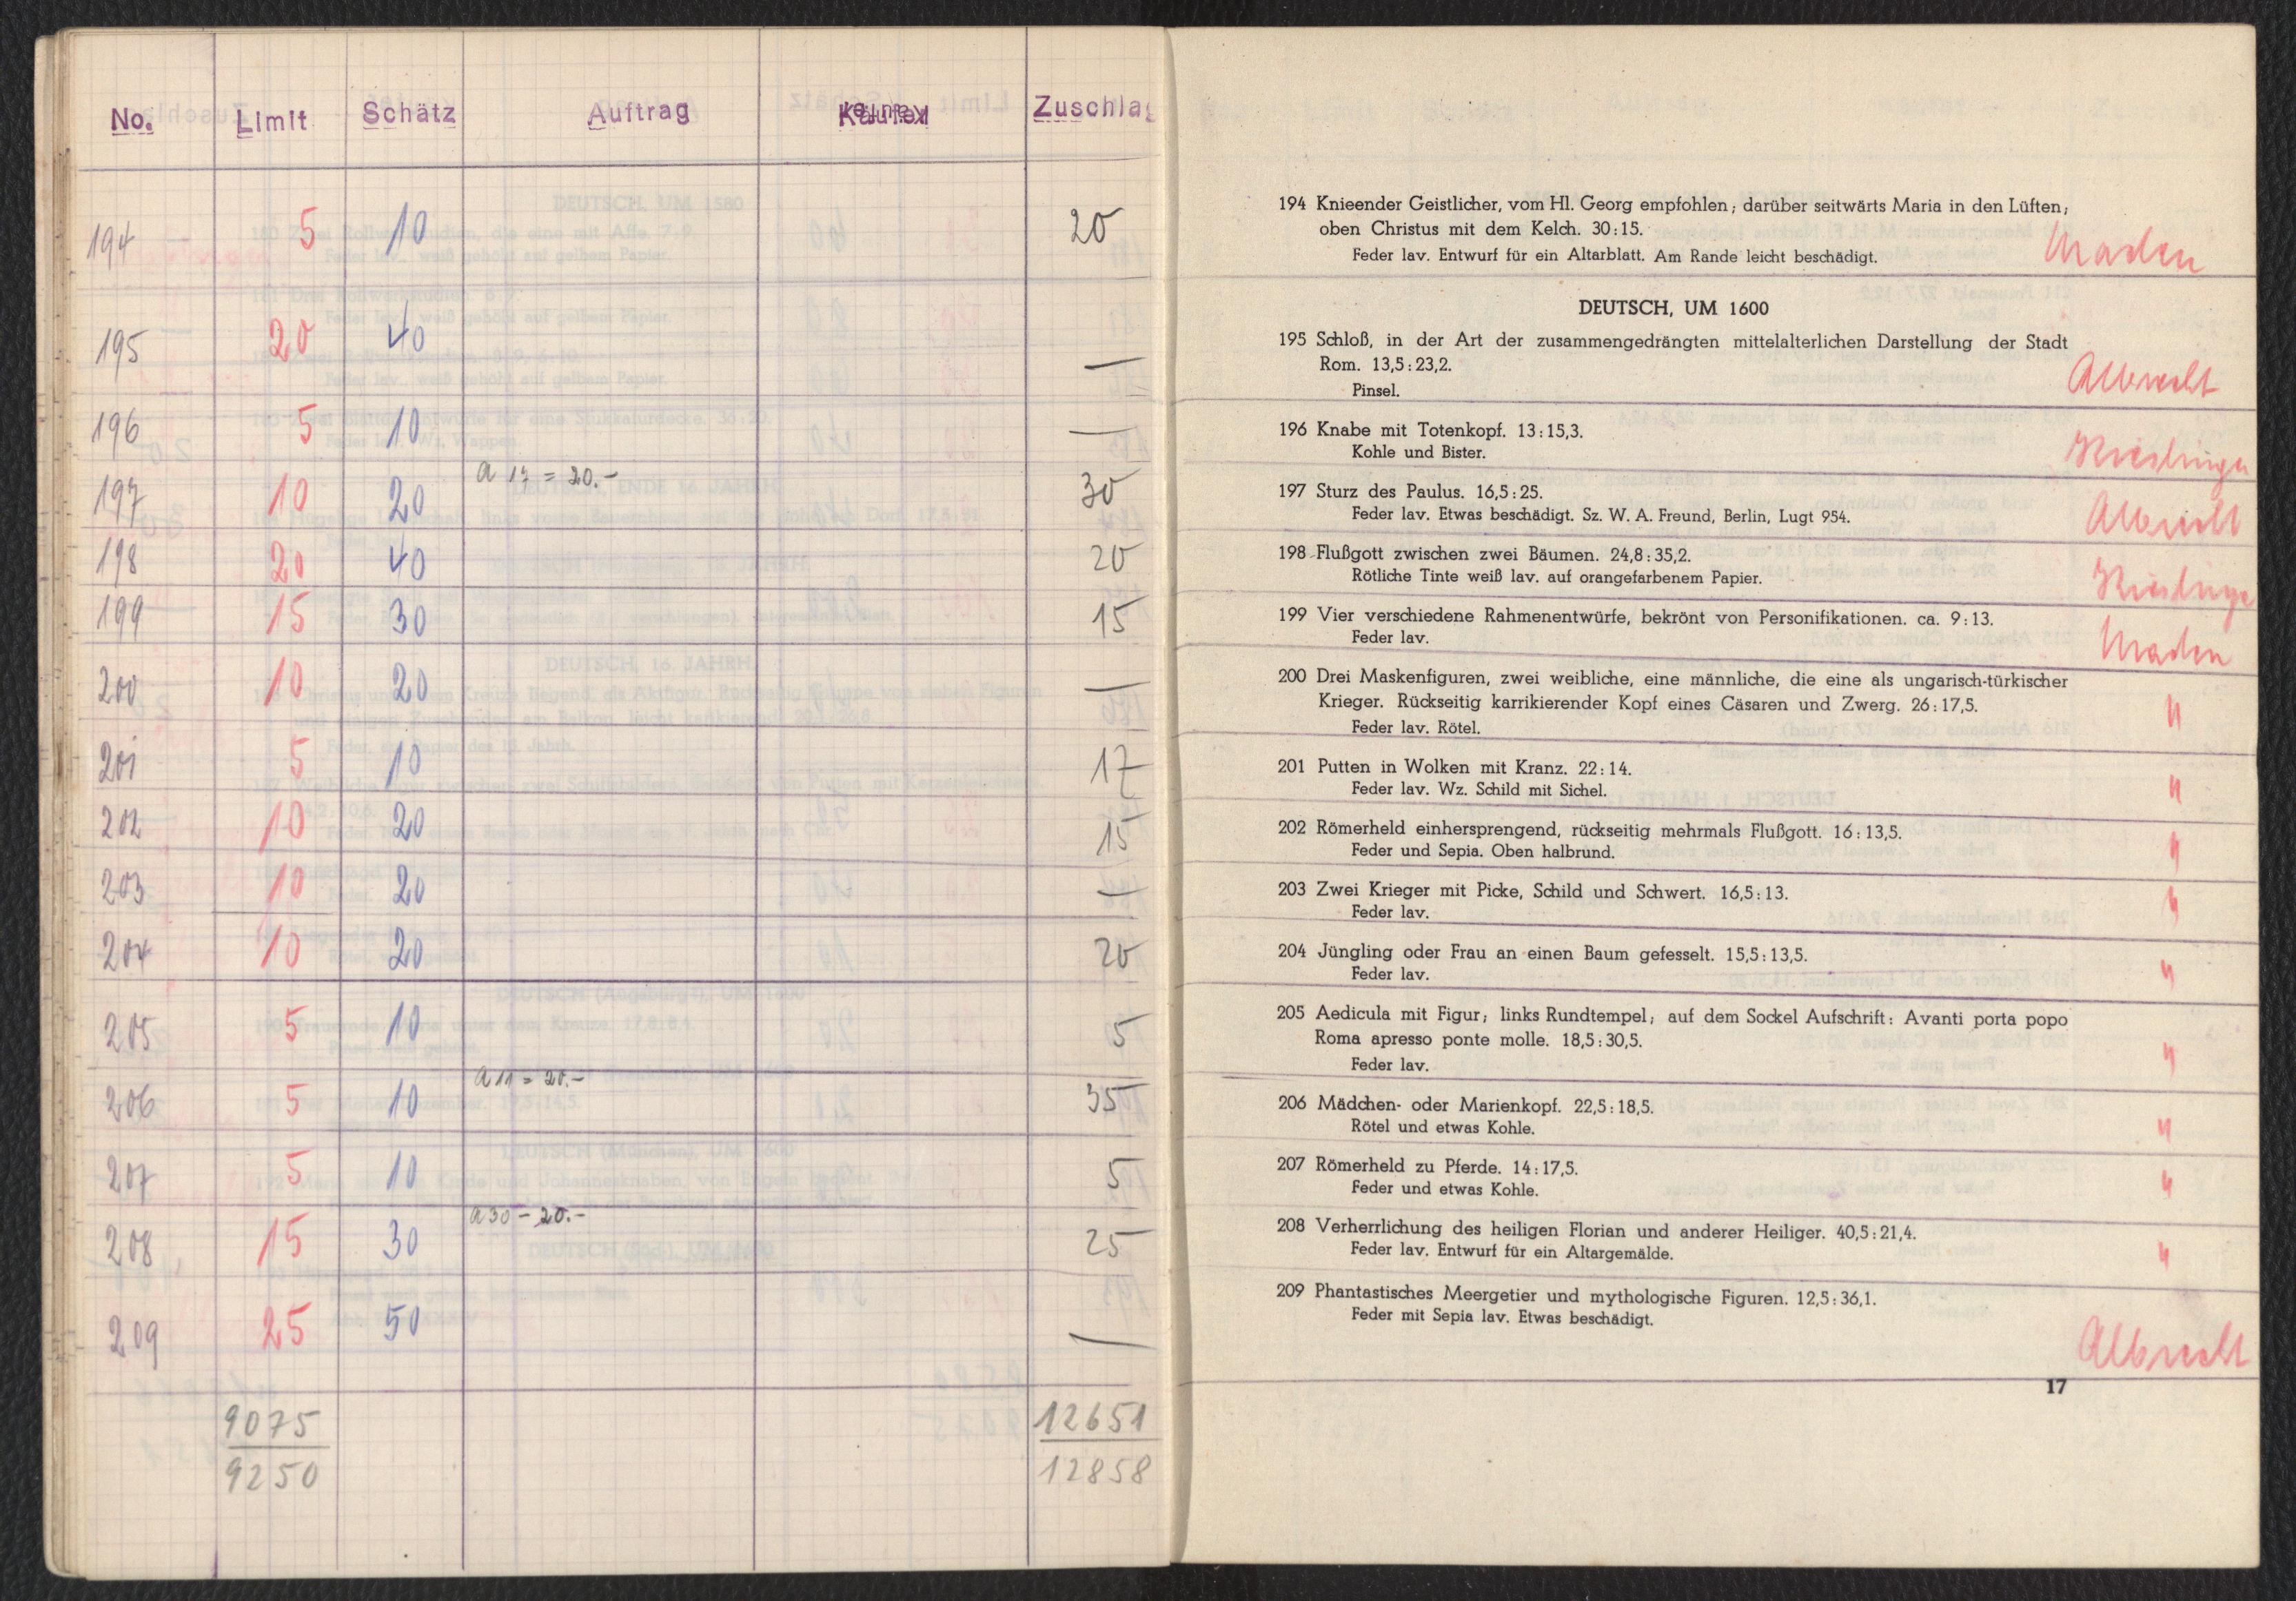 No. Limit Schätz Auftrag Zuschlag
194 5 10 20
195 20 40 —
196 5 10 —
197 10 20 a 17 = 20.- 30
198 20 40 20
199 15 30 15
200 10 20 —
201 5 10 17
202 10 20 15
203 10 20 —
204 10 20 20
205 5 10 5
206 5 10 a 11 = 20.- 35
207 5 10 5
208 15 30 a 30 - 20.- 25
209 25 50 —
9075 12651
9250 12858
194 Knieender Geistlicher, vom Hl. Georg empfohlen; darüber seitwärts Maria in den Lüften;
oben Christus mit dem Kelch. 30:15.
Feder lav. Entwurf für ein Altarblatt. Am Rande leicht beschädigt.
DEUTSCH, UM 1600
195 Schloß, in der Art der zusammengedrängten mittelalterlichen Darstellung der Stadt
Rom. 13,5:23,2.
Pinsel. Albrecht
196 Knabe mit Totenkopf. 13:15,3.
Kohle und Bister.
197 Sturz des Paulus. 16,5:25.
Feder lav. Etwas beschädigt. Sz. W. A. Freund, Berlin, Lugt 954. Albrecht
198 Flußgott zwischen zwei Bäumen. 24,8:35,2.
Rötliche Tinte weiß lav. auf orangefarbenem Papier.
199 Vier verschiedene Rahmenentwürfe, bekrönt von Personifikationen. ca. 9:13.
Feder lav.
200 Drei Maskenfiguren, zwei weibliche, eine männliche, die eine als ungarisch-türkischer
Krieger. Rückseitig karrikierender Kopf eines Cäsaren und Zwerg. 26:17,5. "
Feder lav. Rötel.
201 Putten in Wolken mit Kranz. 22:14.
Feder lav. Wz. Schild mit Sichel. "
202 Römerheld einhersprengend, rückseitig mehrmals Flußgott. 16:13,5.
Feder und Sepia. Oben halbrund. "
203 Zwei Krieger mit Picke, Schild und Schwert. 16,5:13.
Feder lav. "
204 Jüngling oder Frau an einen Baum gefesselt. 15,5:13,5.
Feder lav. "
205 Aedicula mit Figur; links Rundtempel; auf dem Sockel Aufschrift: Avanti porta popo
Roma apresso ponte molle. 18,5:30,5.
Feder lav. "
206 Mädchen- oder Marienkopf. 22,5:18,5.
Rötel und etwas Kohle. "
207 Römerheld zu Pferde. 14:17,5.
Feder und etwas Kohle. "
208 Verherrlichung des heiligen Florian und anderer Heiliger. 40,5:21,4.
Feder lav. Entwurf für ein Altargemälde. "
209 Phantastisches Meergetier und mythologische Figuren. 12,5:36,1.
Feder mit Sepia lav. Etwas beschädigt.
Albrecht
17